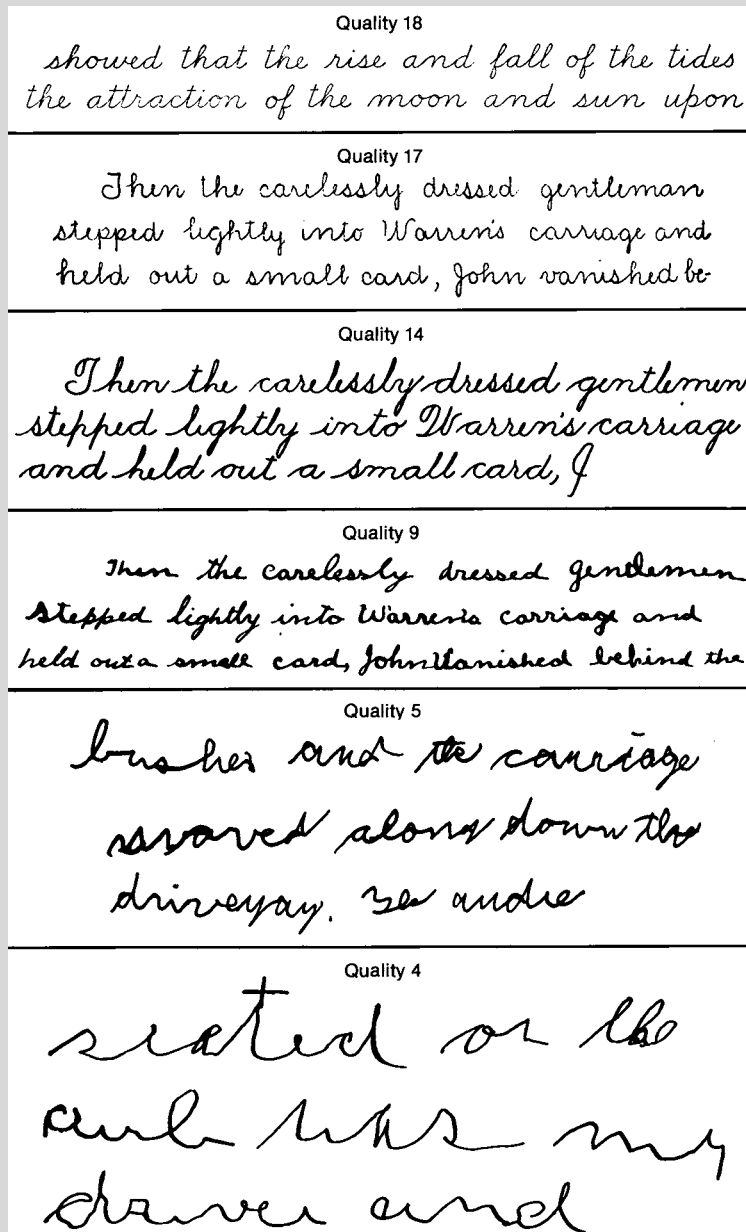 Quality 18
showed that the rise and fall of the tides
the attraction of the moon and sun upon
Quality 17
Then the carelessly dressed gentleman
stepped lightly into Warren's carriage and
held out a small card, John vanished be-
Quality 14
Then the carelessly dressed gentlemen
stepped lightly into Warren's carriage
and held out a small card, J
Quality 9
Then the carelessly dressed gentlemen
stepped lightly into Warren's carriage and
held out a small card, John Vanished behind the
Quality 5
bushes and the carriage
moved along down the
driveway.
Quality 4
seated on the
curb was my
driver and